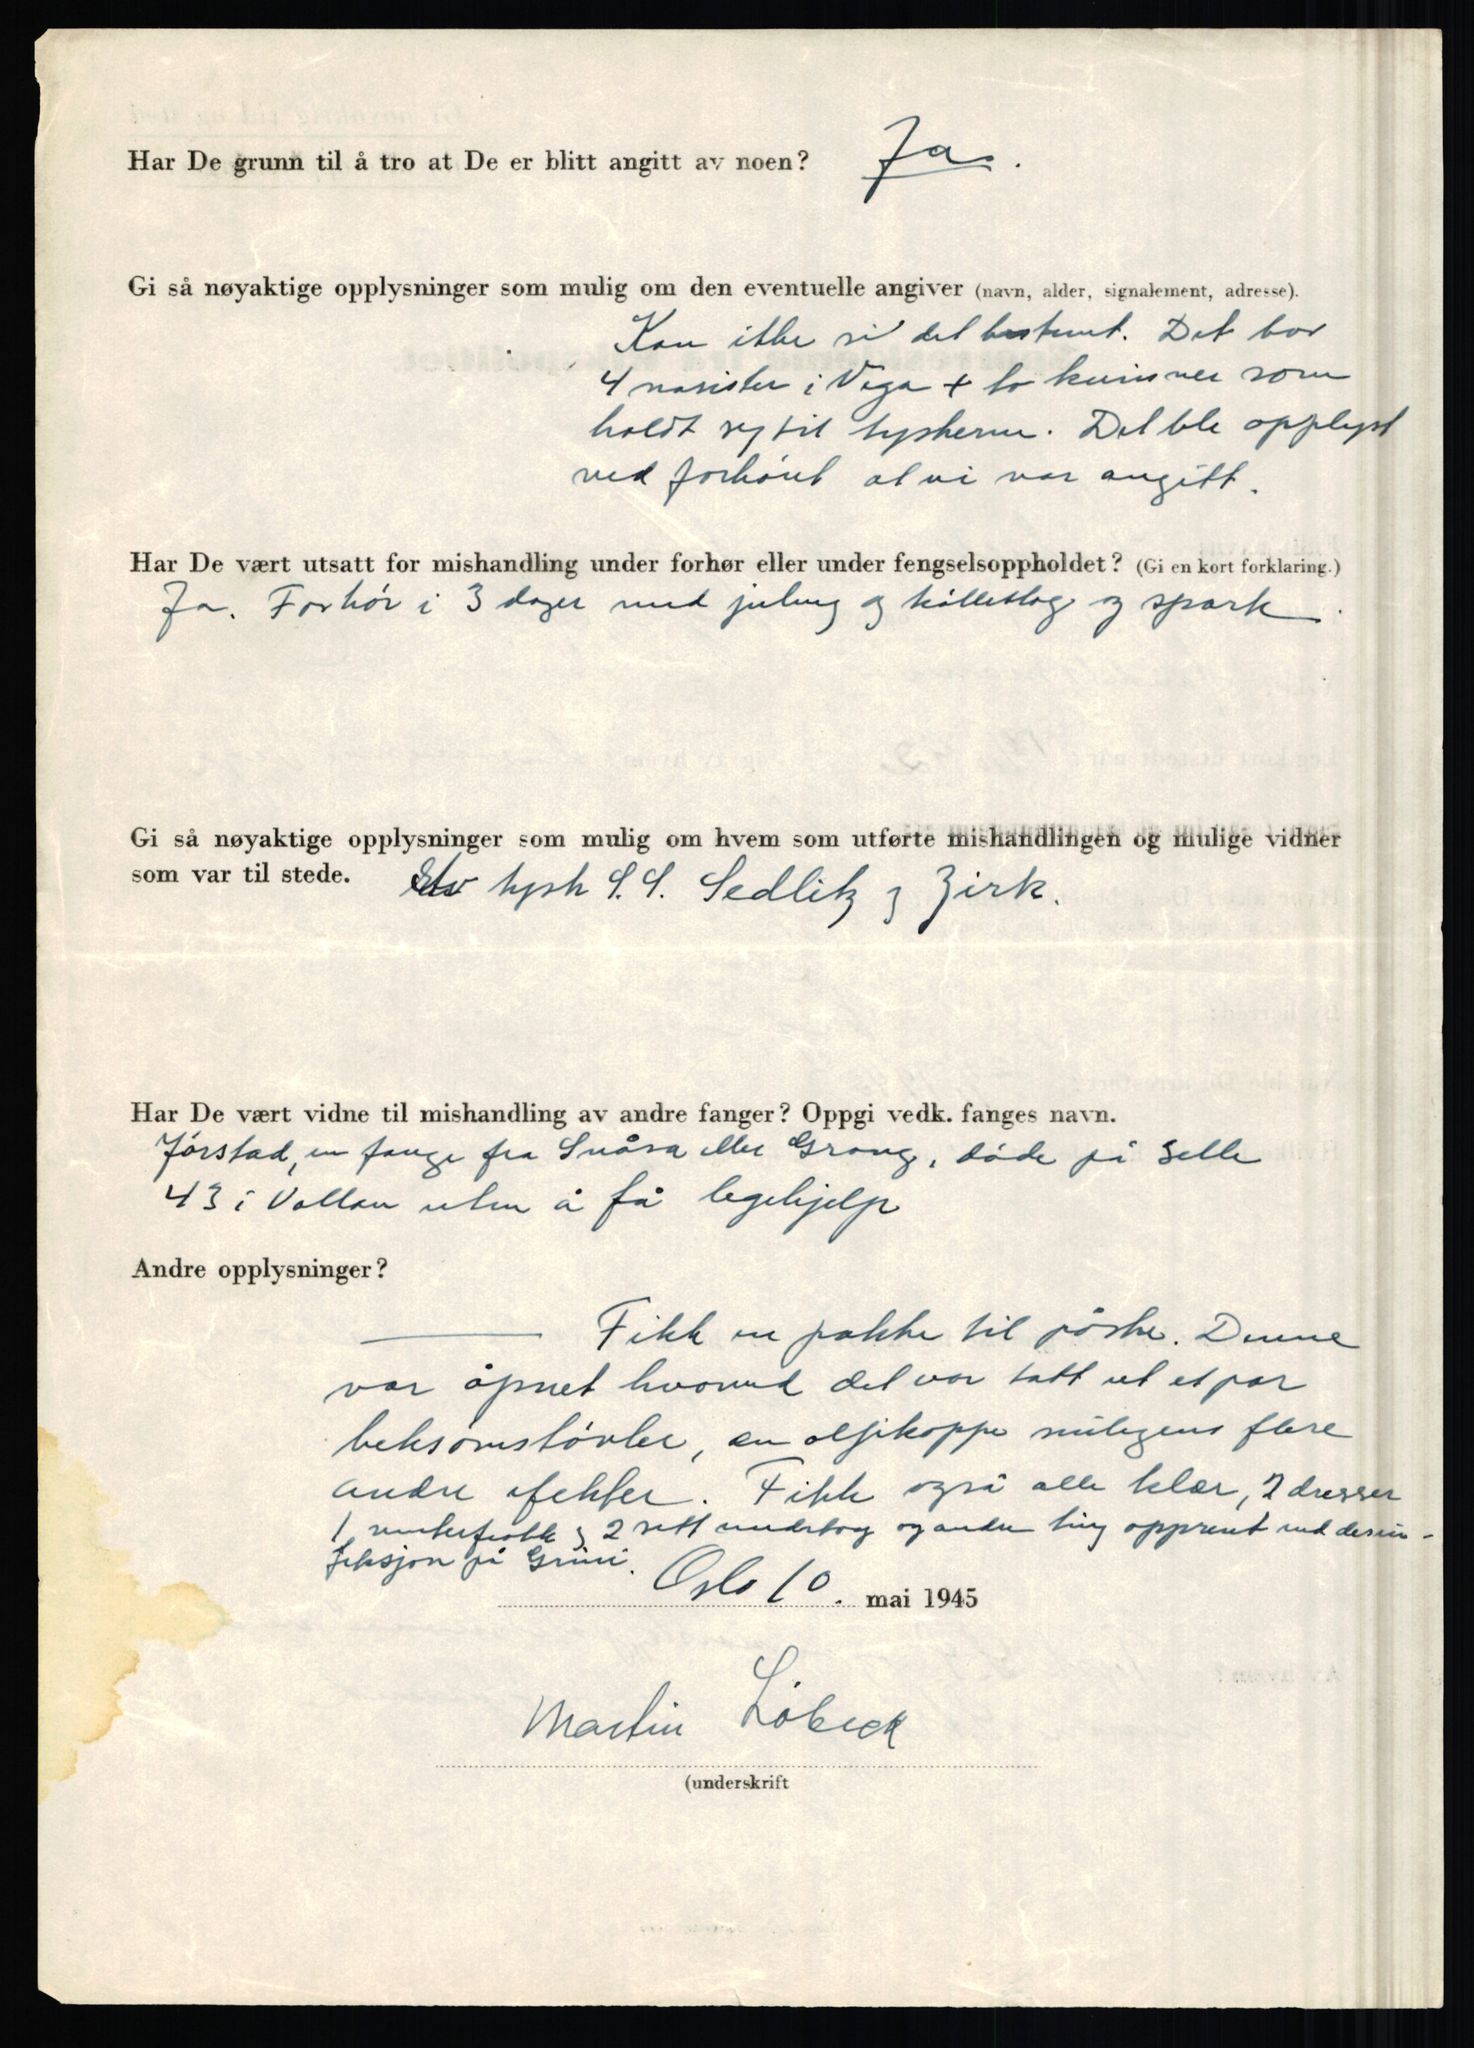 Har De grunn til å tro at De er blitt angitt av noen? Ja.
Gi så nøyaktige opplysninger som mulig om den eventuelle angiver (navn, alder, signalement, adresse).
Kan ikke si det bestemt. Det bor
4 nasister i Vega + to kvinner som
holdt sig til tyskerne. Det ble opplyst
ved forhöret at vi var angitt.
Har De vært utsatt for mishandling under forhør eller under fengselsoppholdet? (Gi en kort forklaring.)
Ja. Forhör i 3 dager med juling og kölleslag og spark.
Gi så nøyaktige opplysninger som mulig om hvem som utførte mishandlingen og mulige vidner
som var til stede. tysk S.S. Sedlitz og Zirk.
Har De vært vidne til mishandling av andre fanger? Oppgi vedk. fanges navn.
Jörstad, en fange fra Snåsa eller Grong, döde på Selle
43 i Vollan uten å få legehjelp
Andre opplysninger?
Fikk en pakke til påske. Denne
var åpnet hvorved det var tatt ut et par
beksömstövler, en oljekappe muligens flere
andre efekter. Fikk også alle klær, 2 dresser
1 vinterfrakk og 2 sett undertøy og andre ting opprent ved desin-
feksjon på Grini.
Oslo 10. mai 1945
Martin Löbeck
(underskrift